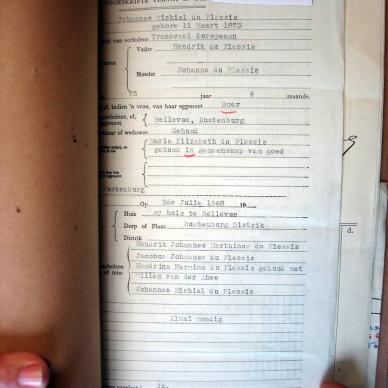 VOORSKRIFTE VERVAT IN
Johannes Michiel du Plessis
gebore 11 Maart 1873
van oorledene Transvaal Europeaan
Vader Hendrik du Plessis
Moeder Johanna du Plessis
75 jaar 4 maande.
of, indien 'n vrou, van haar eggenoot Boer
Bellevue, Rustenburg
of weduwee Gehuud
Maria Elizabeth du Plessis
gehuud in gemeenskap van goed
Rustenburg
Op 8de Julie 1948 19
Huis sy huis te Bellevue
Dorp of Plaas Rustenburg Distrik
Distrik
Hendrik Johannes Marthinus du Plessis
Jacobus Johannes du Plessis
Hendrina Hermina du Plessis gehuud met
Willem van der Ahee
Johannes Michiel du Plessis
Almal mondig
d.
Ja.